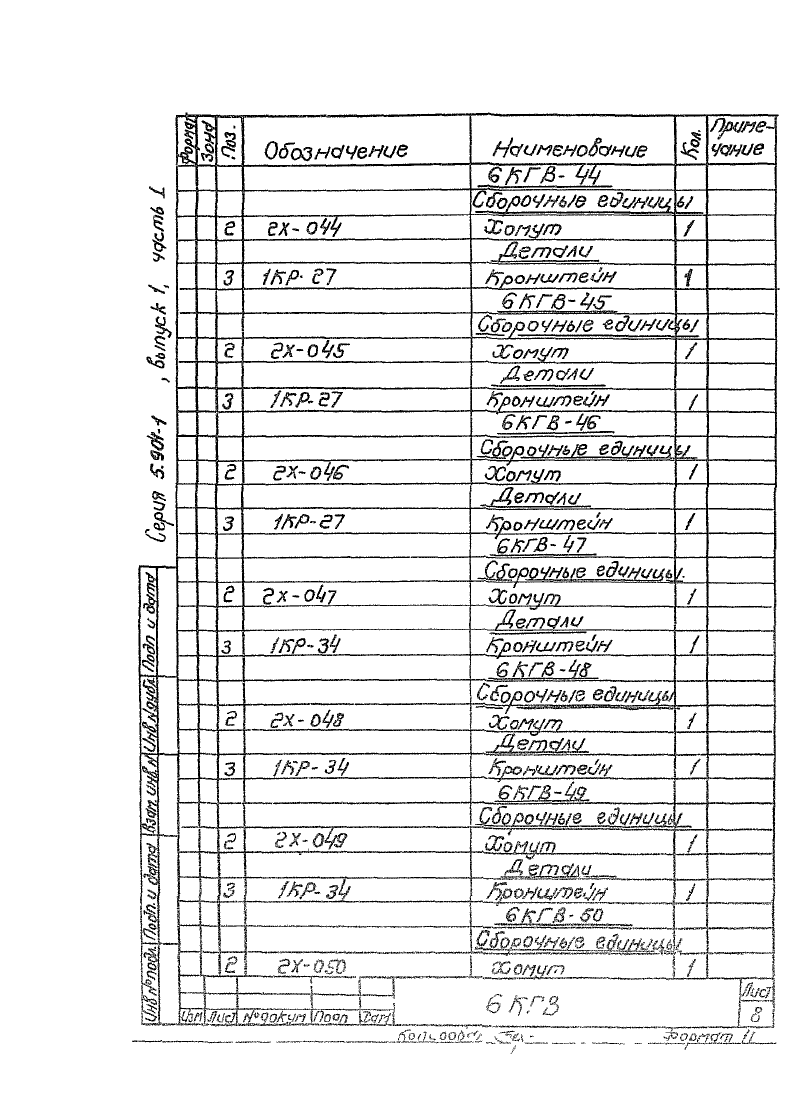 Формат Зона Поз. Обозначение Наименование Кол. Примечание
6КГВ-44
Сборочные единицы
2 2Х-044 Хомут 1
Детали
3 1КР-27 Кронштейн 1
6КГВ-45
Сборочные единицы
2 2Х-045 Хомут 1
Детали
3 1КР-27 Кронштейн 1
6КГВ-46
Сборочные единицы
2 2Х-046 Хомут 1
Детали
3 1КР-27 Кронштейн 1
6КГВ-47
Сборочные единицы.
2 2Х-047 Хомут 1
Детали
3 1КР-34 Кронштейн 1
6КГВ-48
Сборочные единицы
2 2Х-048 Хомут 1
Детали
3 1КР-34 Кронштейн 1
6КГВ-49
Сборочные единицы
2 2Х-049 Хомут 1
Детали
3 1КР-34 Кронштейн 1
6КГВ-50
Сборочные единицы
2 2Х-050 Хомут 1
Изм Лист № докум Подп Дат
6КГВ
Лист
8
Формат 11
Серия 5.904-1 , Выпуск 1, часть 1
Инв № подл. Подп. и дата Взам. инв. № Инв № дубл. Подп и дата